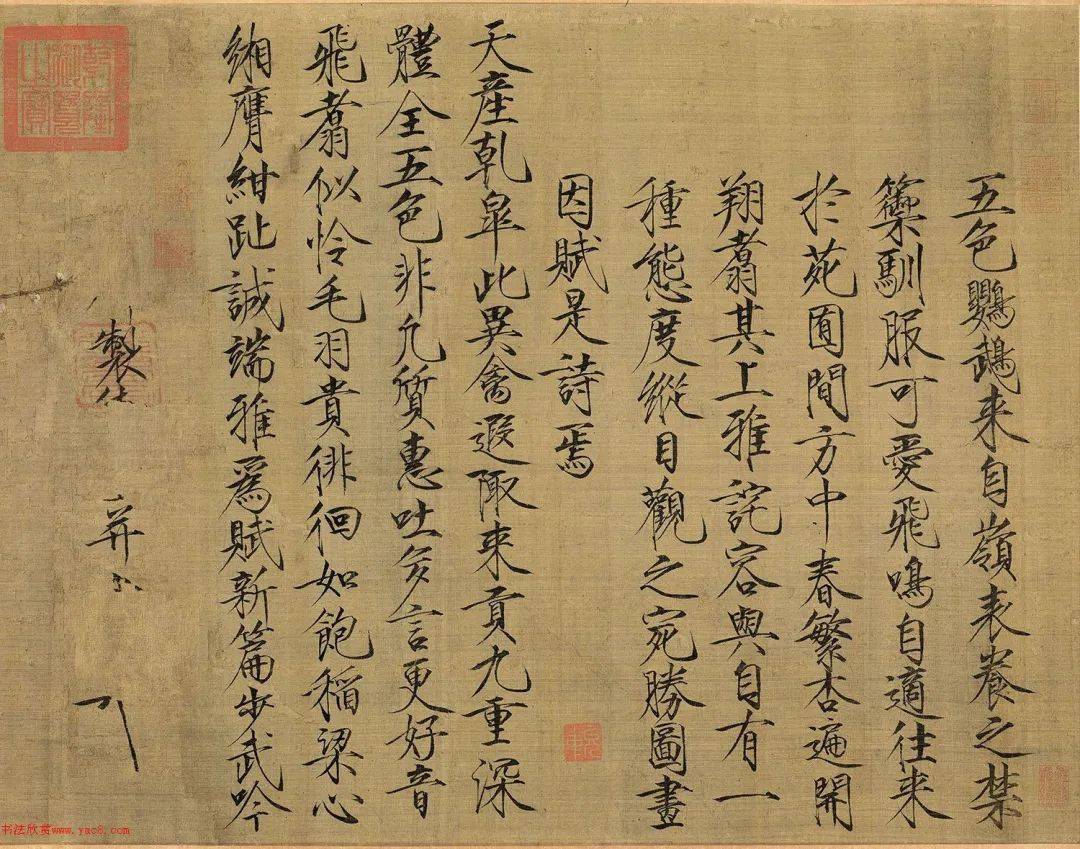 五色鸚鵡来自嶺表養之禁
籞馴服可愛飛鳴自適往来
於苑囿間方中春繁杏遍開
翔翥其上雅詫容與自有一
種態度縱目觀之宛勝圖畫
因賦是詩焉
天産乹皐此異禽遐陬来貢九重深
體全五色非凡質惠吐多言更好音
飛翥似怜毛羽貴徘徊如飽稻粱心
緗膺紺趾誠端雅爲賦新篇步武吟
製
乾隆御覽之寶
书法欣赏www.yac8.com